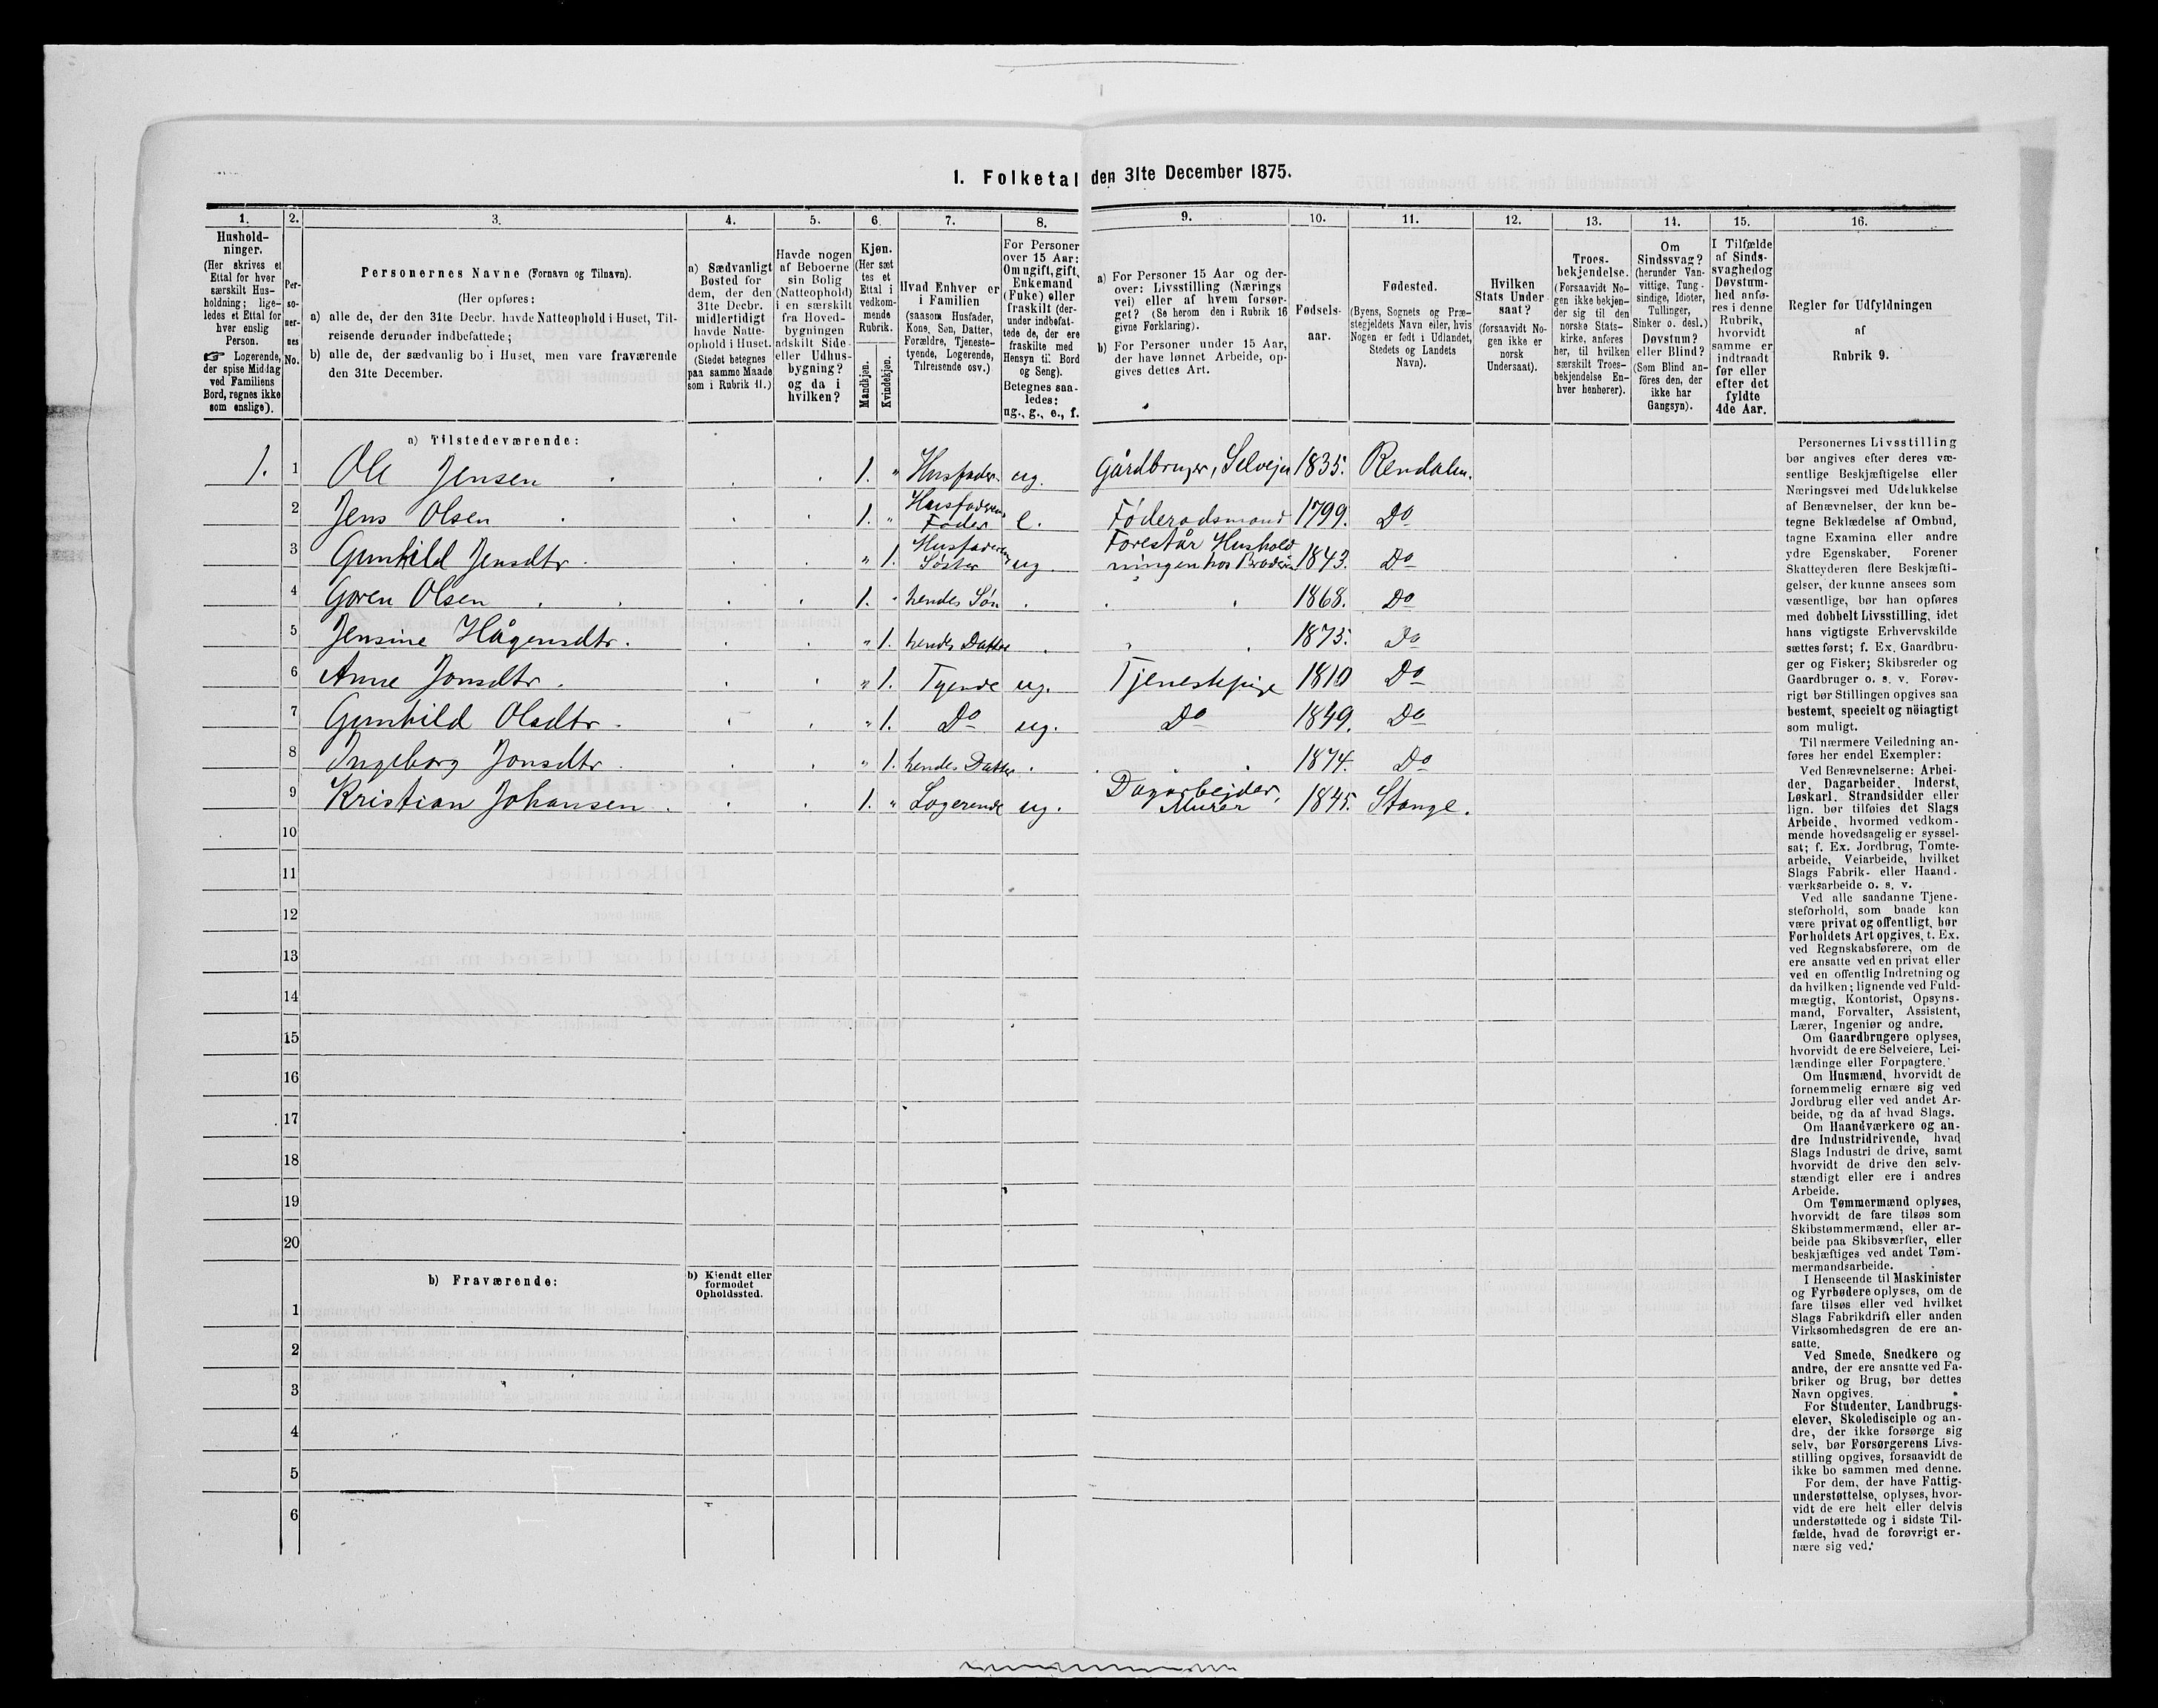 I. Folketal den 31te December 1875.
1. 2. 3. 4. 5. 6. 7. 8. 9. 10. 11. 12. 13. 14. 15. 16.
Hushold-
ninger.
(Her skrives et
Ettal for hver
særskilt Hus-
holdning; lige-
ledes et Ettal for
hver enslig
Person.
☞ Logerende,
der spise Middag
ved Familiens
Bord, regnes ikke
som enslige).
Per-
so-
ner-
nes
No.
Personernes Navne (Fornavn og Tilnavn).
(Her opføres:
a) alle de, der den 31te Decbr. havde Natteophold i Huset, Til-
reisende derunder indbefattede;
b) alle de, der sædvanlig bo i Huset, men vare fraværende
den 31te December.
a) Sædvanligt
Bosted for
dem, der den
31te Decbr.
midlertidigt
havde Natte-
ophold i Huset.
(Stedet betegnes
paa samme Maade
som i Rubrik 11.)
Havde nogen
af Beboerne
sin Bolig
(Natteophold)
i en særskilt
fra Hoved-
bygningen
adskilt Side-
eller Udhus-
bygning?
og da i
hvilken?
Kjøn.
(Her sæt
tes et
Ettal i
vedkom-
mende
Rubrik.
Mandkjøn.
Kvindekjøn.
Hvad Enhver er
i Familien
(saasom Husfader,
Kone, Søn, Datter,
Forældre, Tjeneste-
tyende, Logerende,
Tilreisende osv.)
For Personer
over 15 Aar:
Om ugift, gift,
Enkemand
(Enke) eller
fraskilt (der-
under indbefat-
tede de, der ere
fraskilte med
Hensyn til Bord
og Seng).
Betegnes saa-
ledes:
ug., g., e., f.
a) For Personer 15 Aar og der-
over: Livsstilling (Nærings
vei) eller af hvem forsør-
get? (Se herom den i Rubrik 16
givne Forklaring).
b) For Personer under 15 Aar,
der have lønnet Arbeide, op-
gives dettes Art.
Fødsels-
aar.
Fødested.
(Byens, Sognets og Præ-
stegjeldets Navn eller, hvis
Nogen er født i Udlandet,
Stedets og Landets
Navn).
Hvilken
Stats Under-
saat?
(forsaavidt No-
gen ikke er
norsk
Undersaat).
Troes-
bekjendelse.
(Forsaavidt No-
gen ikke bekjen-
der sig til den
norske Stats-
kirke, anføres
her, til hvilken
særskilt Troes-
bekjendelse En-
hver henhører).
Om
Sindssvag?
(herunder Van-
vittige, Tung-
sindige, Idioter,
Tullinger,
Sinker o. desl.)
Døvstum?
eller Blind?
(Som Blind an-
føres den, der
ikke har
Gangsyn).
I Tilfælde
af Sinds-
svaghed og
Døvstum-
hed anfø-
res i denne
Rubrik,
hvorvidt
samme er
indtraadt
før eller
efter det
fyldte
4de Aar.
Regler for Udfyldningen
af
Rubrik 9.
a) Tilstedeværende:
1. 1 Ole Jensen . . . 1. " Husfader. ug. Gårdbruger, Selvejer 1835. Rendalen.
2 Jens Olsen . . . 1. " Husfaderens Fader e. Føderadsmand 1799. Do
3 Gunhild Jensdtr. . . " 1. Husfaderens Søster ug. Forestår Husholdningen hos Broderen 1843. Do
4 Goren Olsen . . . . 1. " hendes Søn . . . 1868. Do
5 Jensine Hågensdtr. . . " 1. hendes Datter . " . 1875. Do
6 Anne Jonsdtr. . . " 1. Tyende ug. Tjenestepige 1810 Do
7 Gunhild Olsdtr. . . " 1. Do ug. Do 1849. Do
8 Ingeborg Jonsdtr. . . " 1. hendes Datter . . . . 1874. Do
9 Kristian Johansen . . . 1. " Logerende ug. Dagarbejder, Murer 1845. Stange.
10
11
12
13
14
15
16
17
18
19
20
b) Fraværende:
b) Kjendt eller
formodet
Opholdssted.
1
2
3
4
5
6
Personernes Livsstilling
bør angives efter deres væ-
sentlige Beskjæftigelse eller
Næringsvei med Udelukkelse
af Benævnelser, der kun be-
tegne Beklædelse af Ombud,
tagne Examina eller andre
ydre Egenskaber. Forener
Skatteyderen flere Beskjæfti-
gelser, der kunne ansees som
væsentlige, bør han opføres
med dobbelt Livsstilling, idet
hans vigtigste Erhvervskilde
sættes først; f. Ex. Gaardbru-
ger og Fisker; Skibsreder og
Gaardbruger o. s. v. Forøv-
rigt bør Stillingen opgives saa
bestemt, specielt og nöiagtigt
som muligt.
Til nærmere Veiledning an-
føres her endel Exempler:
Ved Benævnelserne: Arbei-
der, Dagarbeider, Inderst,
Løskarl, Strandsidder eller
lign. bør tilføies det Slags
Arbeide, hvormed vedkom-
mende hovedsagelig er syssel-
sat; f. Ex. Jordbrug, Tomte-
arbeide, Veiarbeide, hvilket
Slags Fabrik- eller Haand-
værksarbeide o. s. v.
Ved alle saadanne Tjene-
steforhold, som baade kan
være privat og offentligt, bør
Forholdets Art opgives, t. Ex.
ved Regnskabsførere, om de
ere ansatte ved en privat eller
ved en offentlig Indretning og
da hvilken; lignende ved Fuld-
mægtig, Kontorist, Opsyns-
mand, Forvalter, Assistent,
Lærer, Ingeniør og andre.
Om Gaardbrugere oplyses,
hvorvidt de ere Selveiere, Lei-
lændinge eller Forpagtere.
Om Husmænd, hvorvidt de
fornemmelig ernære sig ved
Jordbrug eller ved andet Ar-
beide, og da af hvad Slags.
Om Haandværkere og an-
dre Industridrivende, hvad
Slags Industri de drive, samt
hvorvidt de drive den selv-
stændigt eller ere i andres
Arbeide.
Om Tømmermænd oplyses,
hvorvidt de fare tilsøs som
Skibstømmermænd, eller ar-
beide paa Skibsværfter, eller
beskjæftiges ved andet Tøm-
mermandsarbeide.
I Henseende til Maskinister
og Fyrbødere oplyses, om de
fare tilsøs eller ved hvilket
Slags Fabrikdrift eller anden
Virksomhedsgren de ere an-
satte.
Ved Smede, Snedkere og
andre, der ere ansatte ved Fa-
briker og Brug, bør dettes
Navn opgives.
For Studenter, Landbrugs-
elever, Skoledisciple og an-
dre, der ikke forsørge sig
selv, bør Forsørgerens Livs-
stilling opgives, forsaavidt de
ikke bo sammen med denne.
For dem, der have Fattig-
understøttelse, oplyses, hvor-
vidt de ere helt eller delvis
understøttede og i sidste Til-
fælde, hvad de forøvrigt er-
nære sig ved.